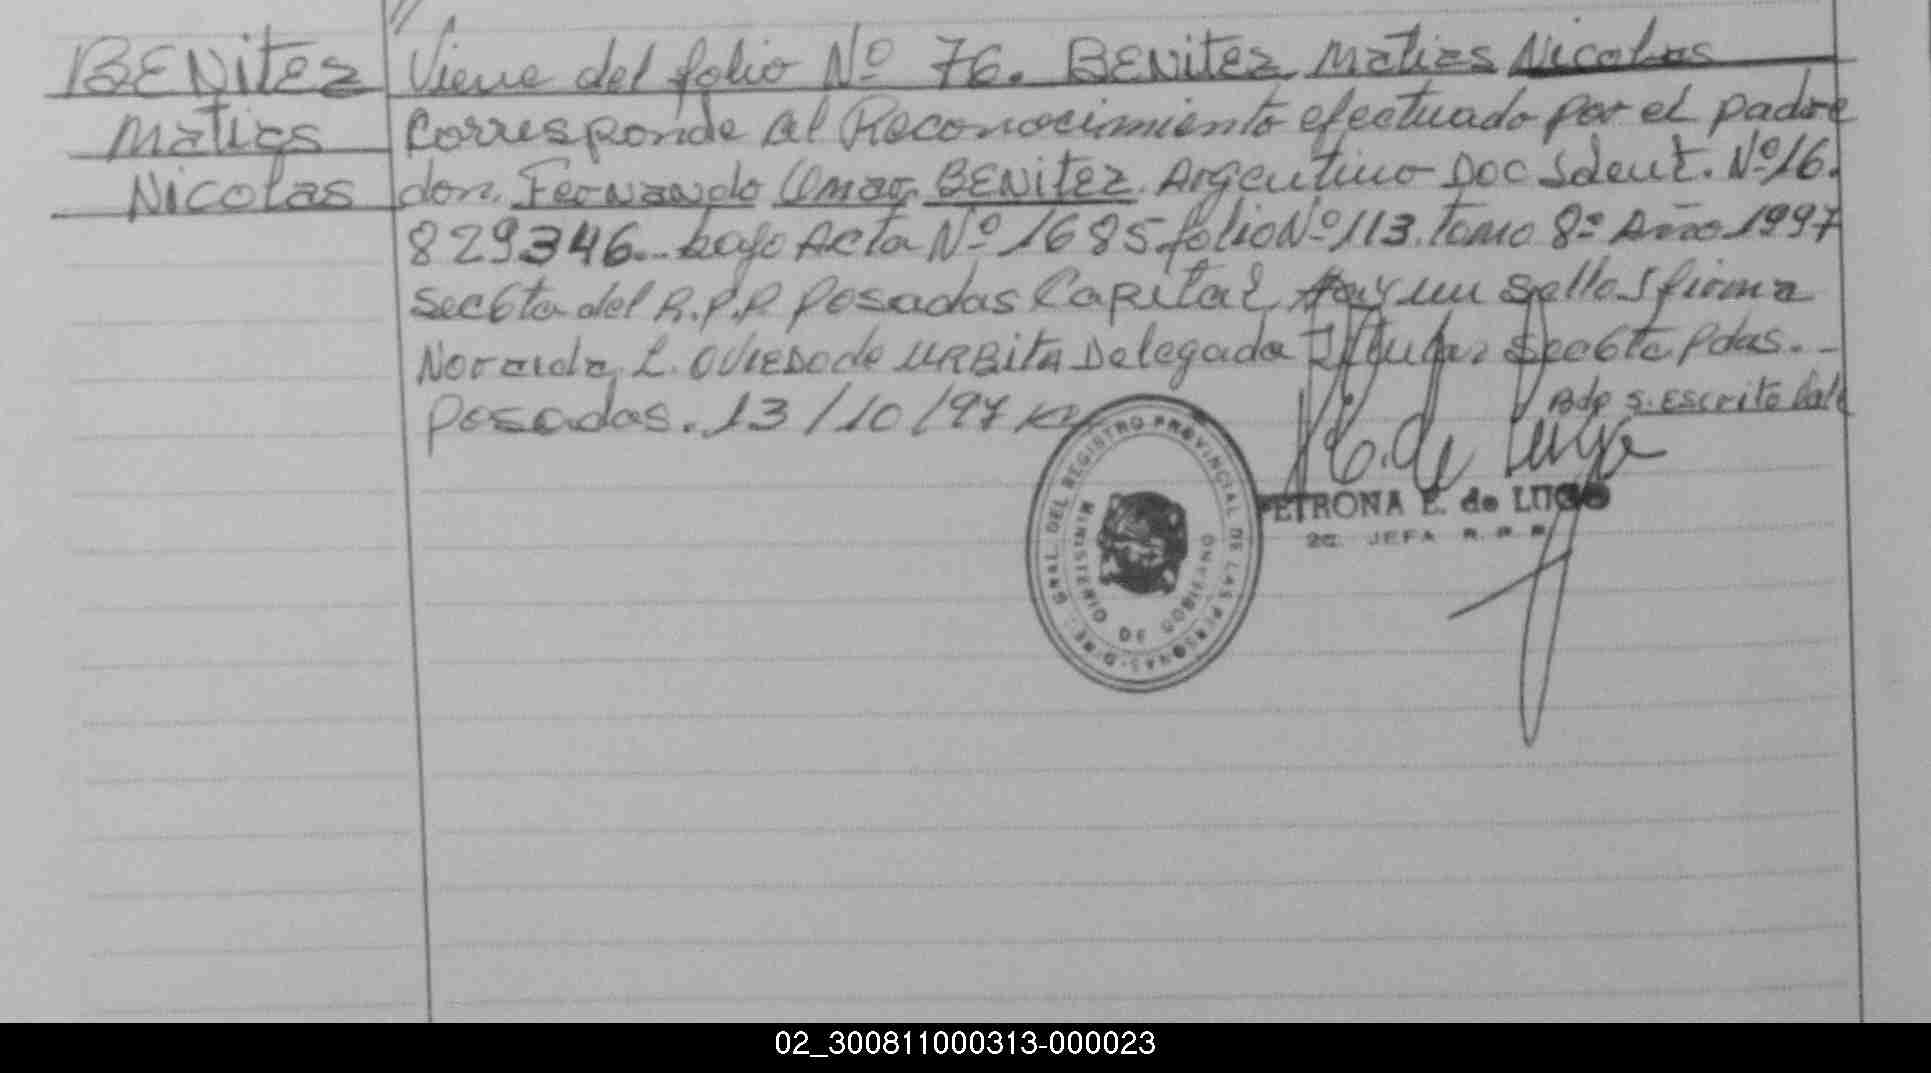 BENitez
Matias
Nicolas
Viene del folio Nº 76. BENitez Matias Nicolas
Corresponde al Reconocimiento efectuado por el padre
don. Fernando Omar BENitez. Argentino Doc Ident. Nº 16.
829346.- bajo Acta Nº 1685 folio Nº 113. tomo 8º Año 1997
Sec 6ta del R.P.P Posadas Capital Hay un sello y firma
Noraida L. OVIEDO de URBITA Delegada Titular Sec 6ta Pdas. -
Posadas. 13/10/97
S. Escrito Vale
GRAL. DEL REGISTRO PROVINCIAL DE LAS PERSONAS
MINISTERIO DE GOBIERNO
PETRONA E. de LUGO
2a. JEFA R. P. P.
02_300811000313-000023